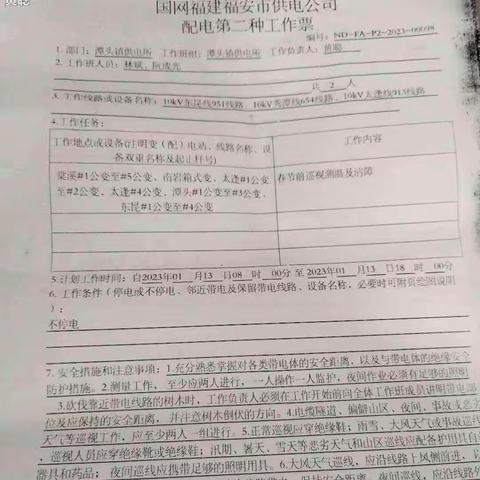 国网福建福安市供电公司
配电第二种工作票
编号: ND-FA-P2-2023-00098
1. 部门: 潭头镇供电所 工作班组: 潭头镇供电所 工作负责人: 黄聪
2. 工作班人员: 林斌、阮成光
共 2 人
3. 工作线路或设备名称: 10kV东昆线951线路、10kV秀潭线654线路、10kV太逢线913线路
4.工作任务:
工作地点或设备(注明变（配）电动、线路名称、设备双重名称及起止杆号)
工作内容
棠溪#1公变至#5公变、南岩箱式变、太逢#1公变至#2公变、太逢#4公变、潭头#1公变至#3公变、东昆#1公变至#4公变
春节前巡视测温及清障
5.计划工作时间: 自2023年01 月13 日08 时 00分 至 2023年01 月13 日18 时 00分
6. 工作条件（停电或不停电、邻近带电及保留带电线路、设备名称，必要时可附页绘图说明
）:
不停电
7. 安全措施和注意事项: 1.充分熟悉掌握对各类带电体的安全距离，以及与带电体的绝缘安全
防护措施。2.测量工作，至少应两人进行，一人操作一人监护，夜间作业必须有足够的照明
3.砍伐靠近带电线路的树木时，工作负责人必须在工作开始前向全体工作班成员讲明带电部
位及应保持的安全距离，并注意树木倒伏的方向。4.电缆隧道、偏僻山区、夜间、事故或恶劣
天气等巡视工作，应至少两人一组进行。5.正常巡视应穿绝缘鞋；雨雪、大风天气或事故巡
，巡视人员应穿绝缘靴或绝缘鞋；汛期、暑天、雪天等恶劣天气和山区巡线应配备必要的
器具和药品； 夜间巡线应携带足够的照明用具。6.大风天气巡线，应沿线路上风侧前进，以